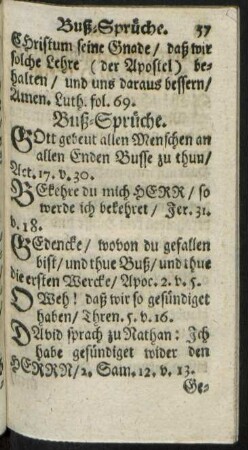 Buß-Sprüche. 37
CHristum seine Gnade / daß wir
solche Lehre (der Apostel) be-
halten / und uns daraus bessern /
Amen. Luth. fol. 69.
Buß-Sprüche.
GOtt gebeut allen Menschen an
allen Enden Busse zu thun /
Act. 17. v. 30.
BEkehre du mich HERR / so
werde ich bekehret / Jer. 31.
v. 18.
GEdencke / wovon du gefallen
bist / und thue Buß / und thue
die ersten Wercke / Apoc. 2. v. 5.
OWeh! daß wir so gesündiget
haben / Thren. 5. v. 16.
DAvid sprach zu Nathan: Ich
habe gesündiget wider den
HERRN / 2. Sam. 12. v. 13.
Ge-